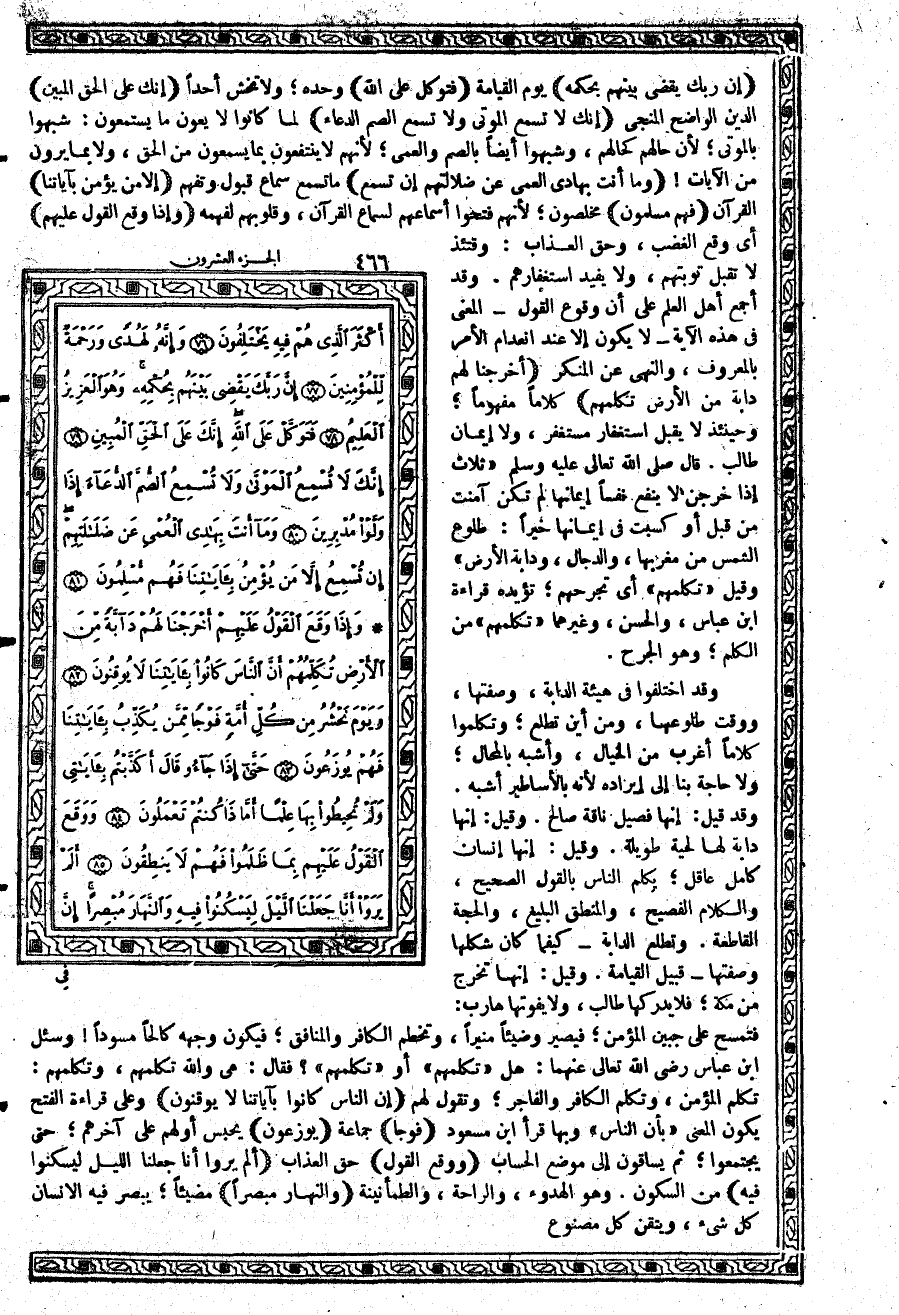 (إن ربك يقضى بينهم بحكمه) يوم القيامة (فتوكل على الله) وحده ؛ ولا تخش أحداً (إنك على الحق المبين)
الدين الواضح المنجى (إنك لا تسمع الموتى ولا تسمع الصم الدعاء) لما كانوا لا يعون ما يستمعون : شبهوا
بالموتى ؛ لأن حالهم كحالهم ، وشبهوا أيضاً بالصم والعمى ؛ لأنهم لاينتفعون بما يسمعون من الحق ، ولا بما يرون
من الآيات ! (وما أنت بهادى العمى عن ضلالتهم إن تسمع) ماتسمع سماع قبول وتفهم (إلا من يؤمن بآياتنا)
القرآن (فهم مسلمون) مخلصون ؛ لأنهم فتحوا أسماعهم لسماع القرآن ، وقلوبهم لفهمه (وإذا وقع القول عليهم)
أى وقع الغضب ، وحق العـذاب : وقتئذ
لا تقبل توبتهم ، ولا يفيد استغفارهم . وقد
أجمع أهل العلم على أن وقوع القول – المعنى
فى هذه الآية – لا يكون إلا عند انعدام الأمر
بالمعروف ، والنهى عن المنكر (أخرجنا لهم
دابة من الأرض تكلمهم) كلاماً مفهوماً ؛
وحينئذ لا يقبل استغفار مستغفر ، ولا إيمان
طالب . قال صلى الله تعالى عليه وسلم «ثلاث
إذا خرجن لا ينفع نفساً إيمانها لم تكن آمنت
من قبل أو كسبت فى إيمانها خيراً : طلوع
الشمس من مغربها ، والدجال ، ودابة الأرض»
وقيل «تكلمهم» أى تجرحهم ؛ تؤيده قراءة
ابن عباس ، والحسن ، وغيرهما «تكلمهم» من
الكلم ؛ وهو الجرح .
وقد اختلفوا فى هيئة الدابة ، وصفتها ،
ووقت طلوعها ، ومن أين تطلع ؛ وتكلموا
كلاماً أغرب من الخيال ، وأشبه بالمحال ؛
ولا حاجة بنا إلى إيراده لأنه بالأساطير أشبه .
وقد قيل : إنها فصيل ناقة صالح . وقيل : إنها
دابة لهـا لحية طويلة . وقيل : إنها إنسان
كامل عاقل ؛ يكلم الناس بالقول الصحيح ،
والكلام الفصيح ، والمنطق البليغ ، والحجة
القاطعة . وتطلع الدابة – كيفما كان شكلها
وصفتها – قبيل القيامة . وقيل : إنها تخرج
من مكة ؛ فلا يدركها طالب ، ولا يفوتها هارب :
فتمسح على جبين المؤمن ؛ فيصير وضيئاً منيراً ، وتخطم الكافر والمنافق ؛ فيكون وجهه كالحاً مسوداً ! وسئل
ابن عباس رضى الله تعالى عنهما : هل «تكلمهم» أو «تكلمهم» ؟ فقال : هى والله تكلمهم ، وتكلمهم :
تكلم المؤمن ، وتكلم الكافر والفاجر ؛ وتقول لهم (إن الناس كانوا بآياتنا لا يوقنون) وعلى قراءة الفتح
يكون المعنى «بأن الناس» وبها قرأ ابن مسعود (فوجا) جماعة (يوزعون) يحبس أولهم على آخرهم ؛ حتى
يجتمعوا ؛ ثم يساقون إلى موضع الحساب (ووقع القول) حق العذاب (ألم يروا أنا جعلنا الليـل ليسكنوا
فيه) من السكون . وهو الهدوء ، والراحة ، والطمأنينة (والنهـار مبصراً) مضيئاً ؛ يبصر فيه الانسان
كل شىء ، ويتقن كل مصنوع
٤٦٦ الجـزء العشرون
أَكْثَرَ ٱلَّذِى هُمْ فِيهِ يَخْتَلِفُونَ ﴿٧٦﴾ وَإِنَّهُۥ لَهُدًى وَرَحْمَةٌ
لِّلْمُؤْمِنِينَ ﴿٧٧﴾ إِنَّ رَبَّكَ يَقْضِى بَيْنَهُم بِحُكْمِهِۦ ۚ وَهُوَ ٱلْعَزِيزُ
ٱلْعَلِيمُ ﴿٧٨﴾ فَتَوَكَّلْ عَلَى ٱللَّهِ ۖ إِنَّكَ عَلَى ٱلْحَقِّ ٱلْمُبِينِ ﴿٧٩﴾
إِنَّكَ لَا تُسْمِعُ ٱلْمَوْتَىٰ وَلَا تُسْمِعُ ٱلصُّمَّ ٱلدُّعَآءَ إِذَا
وَلَّوْا۟ مُدْبِرِينَ ﴿٨٠﴾ وَمَآ أَنتَ بِهَـٰدِى ٱلْعُمْىِ عَن ضَلَـٰلَتِهِمْ ۖ
إِن تُسْمِعُ إِلَّا مَن يُؤْمِنُ بِـَٔايَـٰتِنَا فَهُم مُّسْلِمُونَ ﴿٨١﴾
* وَإِذَا وَقَعَ ٱلْقَوْلُ عَلَيْهِمْ أَخْرَجْنَا لَهُمْ دَآبَّةً مِّنَ
ٱلْأَرْضِ تُكَلِّمُهُمْ أَنَّ ٱلنَّاسَ كَانُوا۟ بِـَٔايَـٰتِنَا لَا يُوقِنُونَ ﴿٨٢﴾
وَيَوْمَ نَحْشُرُ مِن كُلِّ أُمَّةٍ فَوْجًا مِّمَّن يُكَذِّبُ بِـَٔايَـٰتِنَا
فَهُمْ يُوزَعُونَ ﴿٨٣﴾ حَتَّىٰٓ إِذَا جَآءُو قَالَ أَكَذَّبْتُم بِـَٔايَـٰتِى
وَلَمْ تُحِيطُوا۟ بِهَا عِلْمًا أَمَّاذَا كُنتُمْ تَعْمَلُونَ ﴿٨٤﴾ وَوَقَعَ
ٱلْقَوْلُ عَلَيْهِم بِمَا ظَلَمُوا۟ فَهُمْ لَا يَنطِقُونَ ﴿٨٥﴾ أَلَمْ
يَرَوْا۟ أَنَّا جَعَلْنَا ٱلَّيْلَ لِيَسْكُنُوا۟ فِيهِ وَٱلنَّهَارَ مُبْصِرًا ۚ إِنَّ
فى